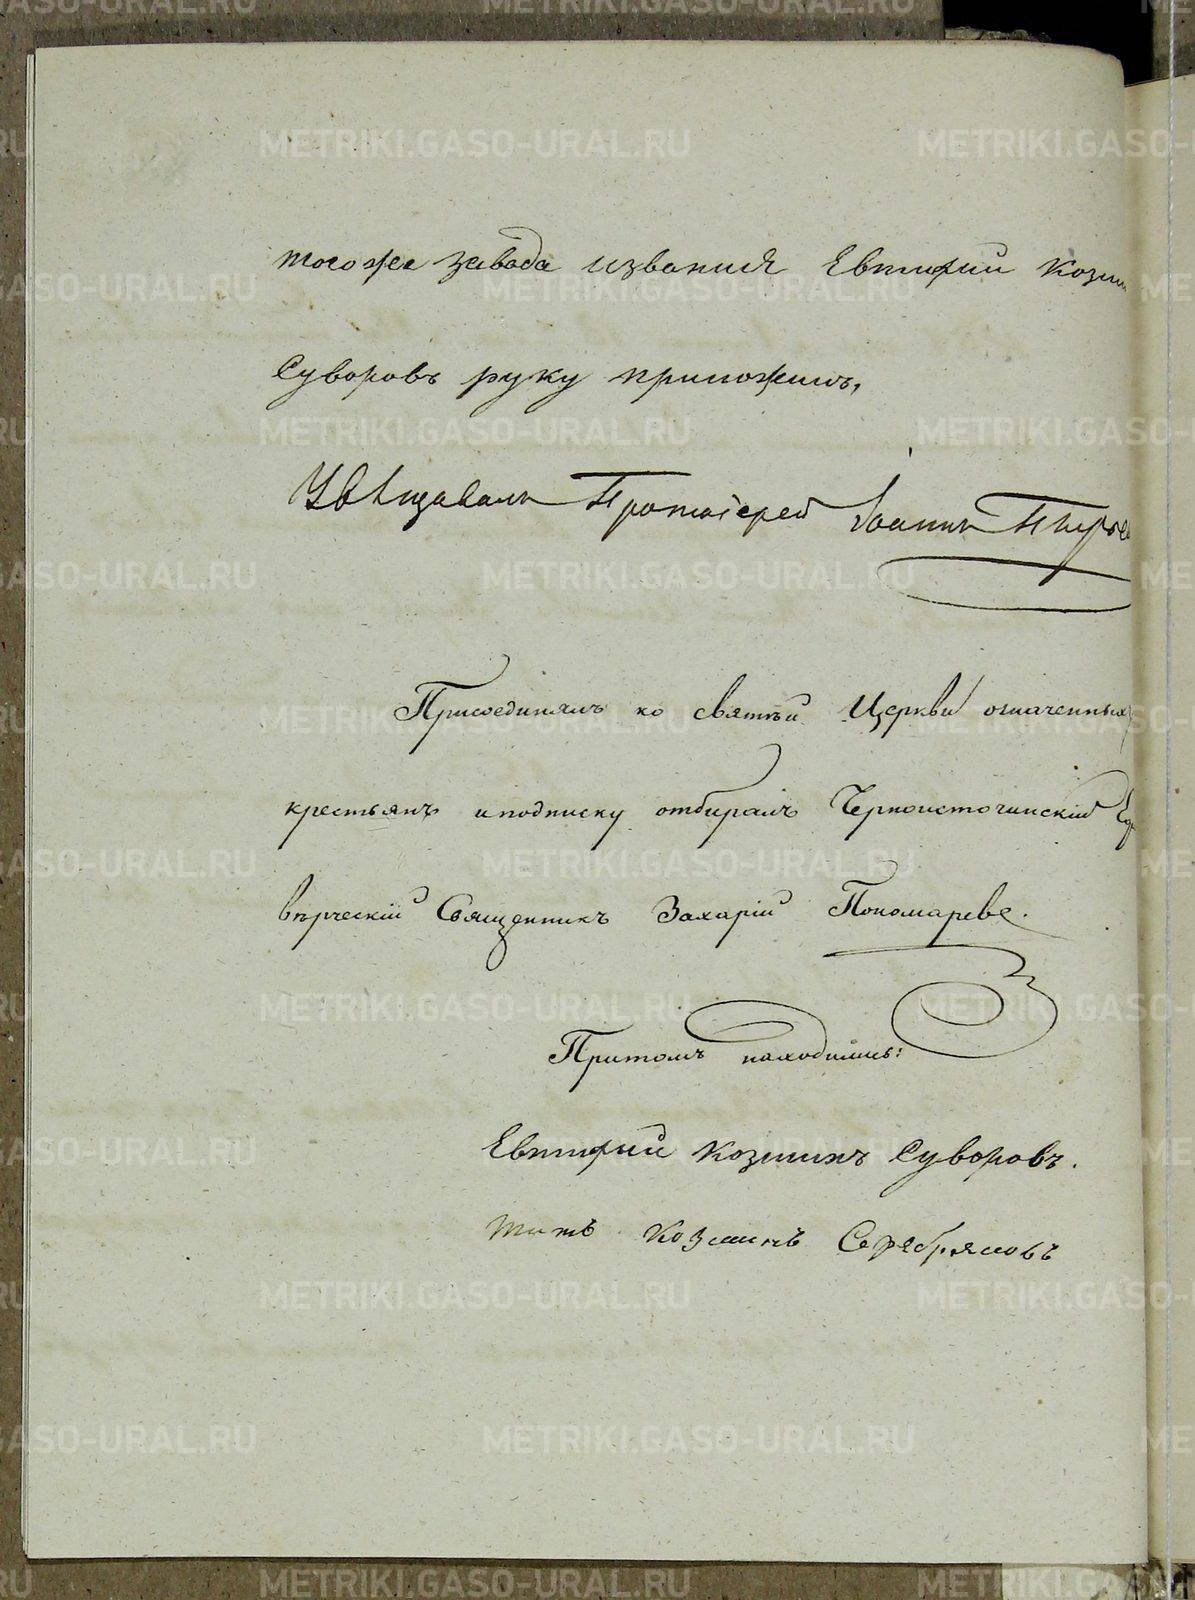 тогоже завода извания Евтифий Козми
Суворовъ руку приложилъ,
Увѣщавалъ Протоіерей Іоаннъ
Присоединялъ ко святѣй Церкви означенныхъ
крестьянъ и подписку отбиралъ Черноисточинскій Ед
вѣрческій Священникъ Захарій Пономаревъ.
Притомъ находились:
Евтифий Козминъ Суворовъ.
титъ Козминъ Серебряковъ
METRIKI.GASO-URAL.RU